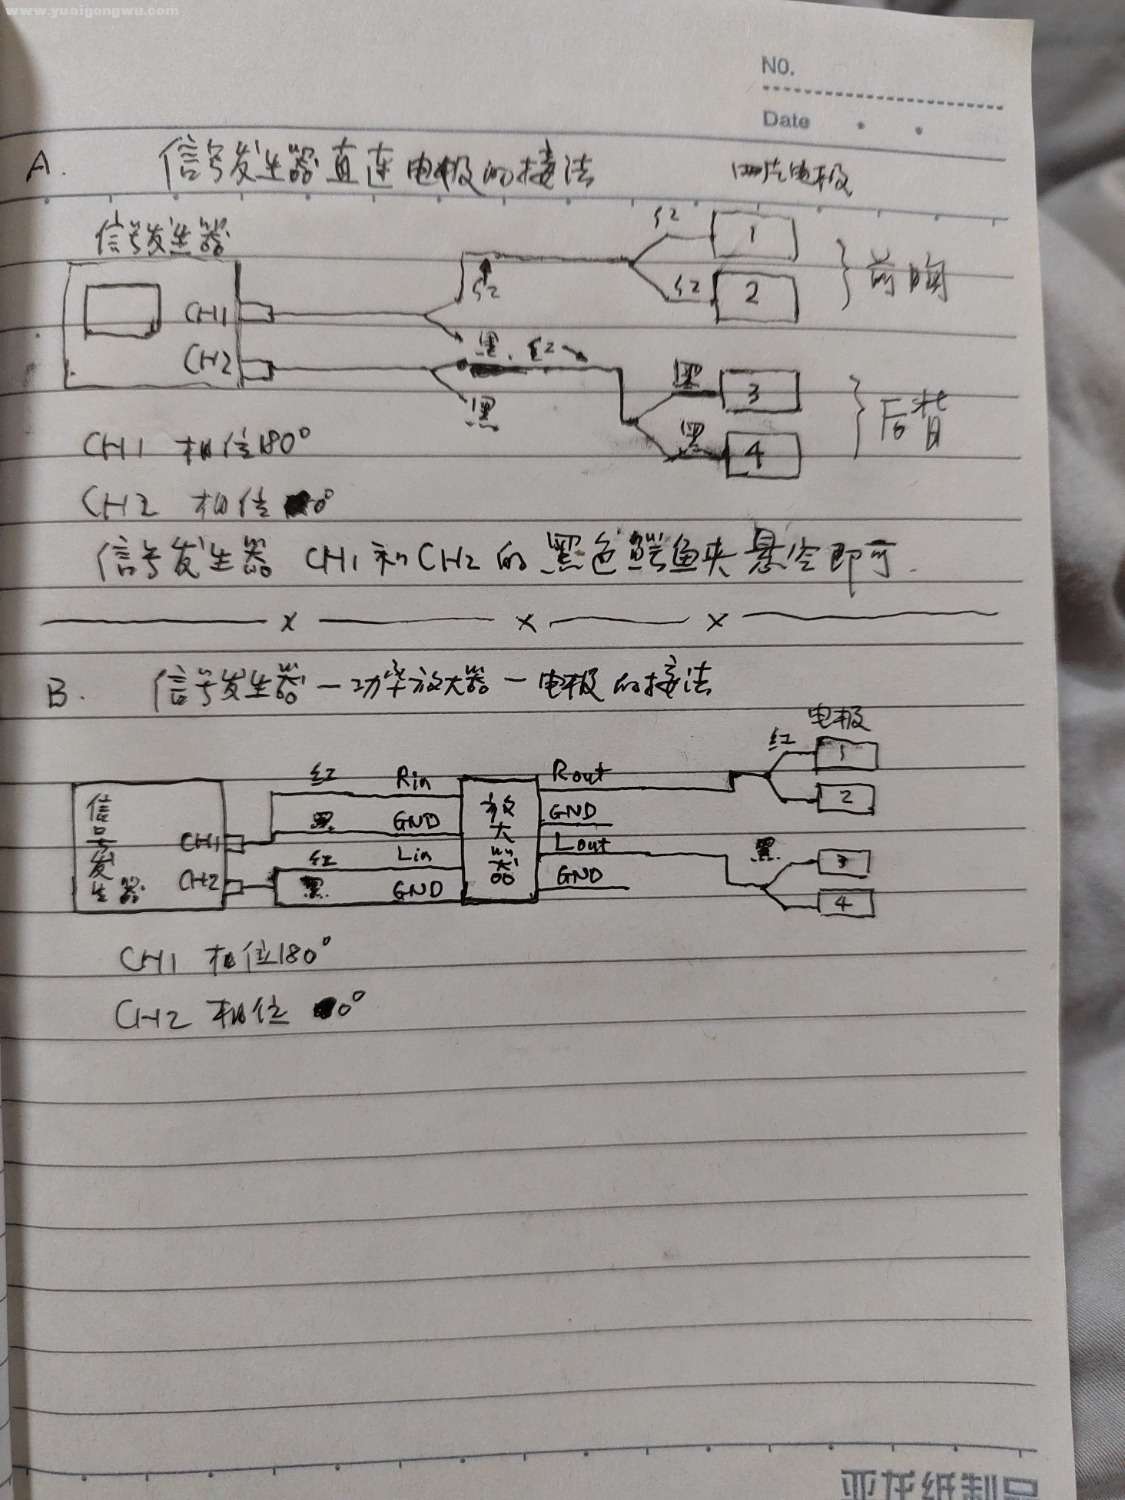 www.yuaigongwu.com
NO.
Date
A. 信号发生器直连电极的接法 四片电极
信号发生器
红 1
红 2
前胸
红
CH1
CH2
黑 红
黑
黑 3
黑 4
后背
CH1 相位180°
CH2 相位 0°
信号发生器 CH1和CH2的黑色鳄鱼夹悬空即可.
x x x
B. 信号发生器-功率放大器-电极的接法
电极
信号发生器
CH1
CH2
红 Rin
黑 GND
红 Lin
黑 GND
放大器
Rout
GND
Lout
GND
红 1
2
黑 3
4
CH1 相位180°
CH2 相位 0°